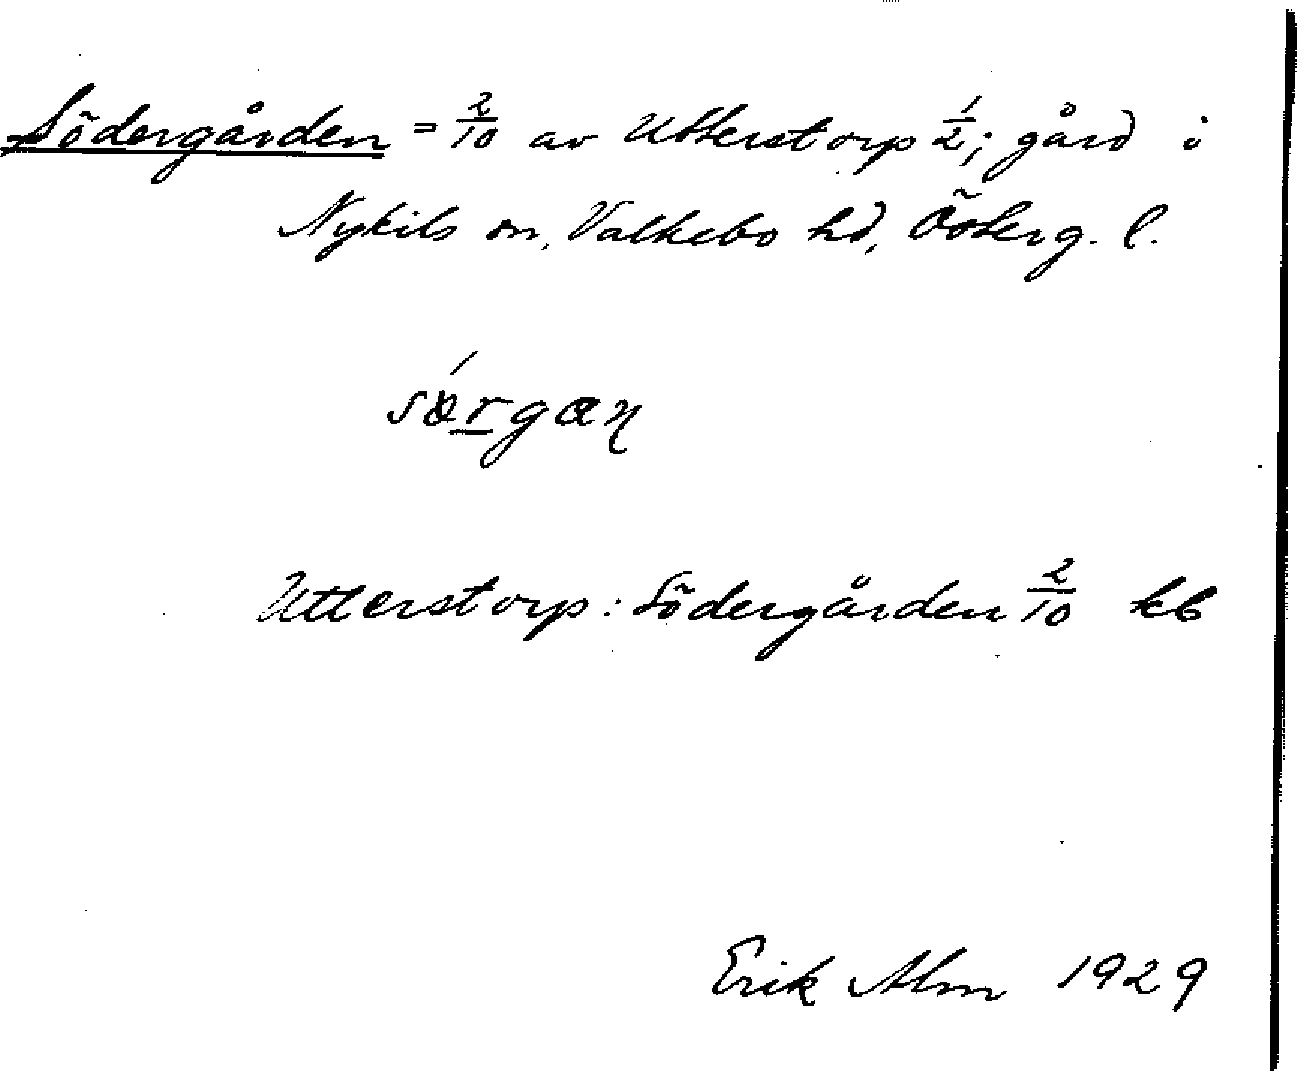 Södergården = 2/10 av Utterstorp 1/2; gård i
Nykils sn, Valkebo hd, Österg. l.
Utterstorp: Södergården 2/10 kb
Erik Alm 1929